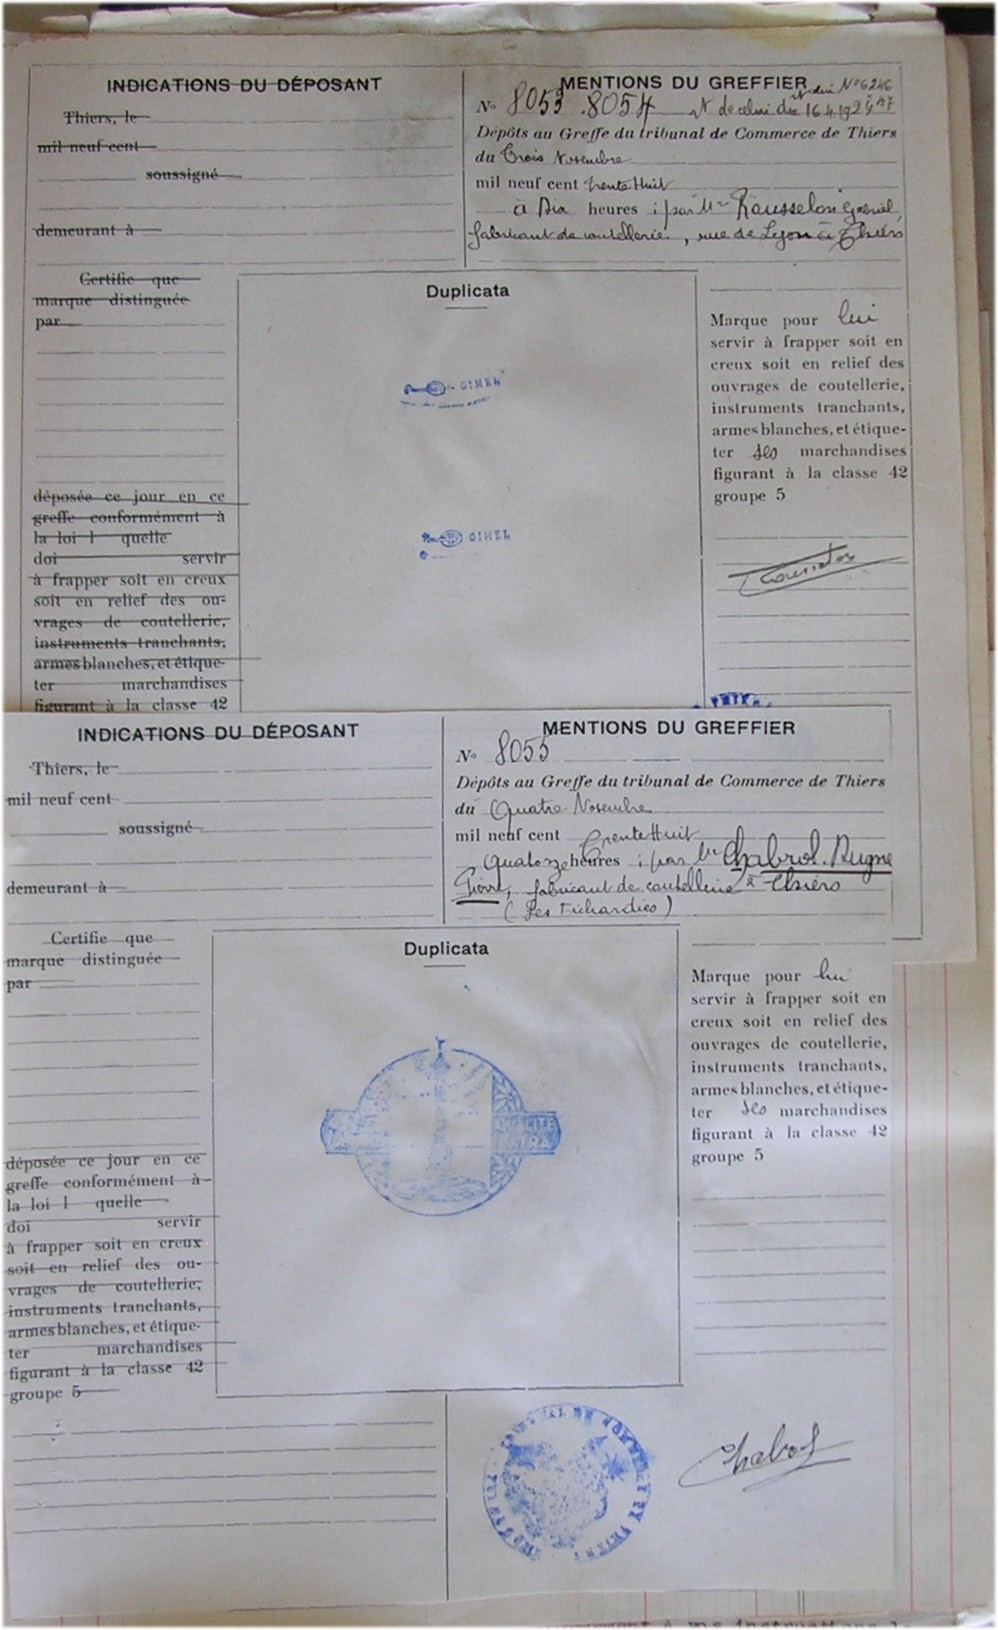 INDICATIONS DU DÉPOSANT
Thiers, le
mil neuf cent
soussigné
demeurant à
MENTIONS DU GREFFIER
No 8053 8054
16.4.1924
Dépôts au Greffe du tribunal de Commerce de Thiers
du Trois Novembre
mil neuf cent trente Huit
à Dix heures ; par Mr Rousselon Gabriel,
fabricant de coutellerie, rue de Lyon à Thiers
Certifie que
marque distinguée
par
déposée ce jour en ce
greffe conformément à
la loi l quelle
doi servir
à frapper soit en creux
soit en relief des ou-
vrages de coutellerie,
instruments tranchants,
armes blanches, et étique-
ter marchandises
figurant à la classe 42
Duplicata
GIMEL
GIMEL
Marque pour lui
servir à frapper soit en
creux soit en relief des
ouvrages de coutellerie,
instruments tranchants,
armes blanches, et étique-
ter ses marchandises
figurant à la classe 42
groupe 5
INDICATIONS DU DÉPOSANT
Thiers, le
mil neuf cent
soussigné
demeurant à
MENTIONS DU GREFFIER
No 8055
Dépôts au Greffe du tribunal de Commerce de Thiers
du Quatre Novembre
mil neuf cent trente Huit
Quatorze heures ; par Mr Chabrol. Dugne
Pierre, fabricant de coutellerie à Thiers
(Les Fichardies)
Certifie que
marque distinguée
par
déposée ce jour en ce
greffe conformément à
la loi l quelle
doi servir
à frapper soit en creux
soit en relief des ou-
vrages de coutellerie,
instruments tranchants,
armes blanches, et étique-
ter marchandises
figurant à la classe 42
groupe 5
Duplicata
Marque pour lui
servir à frapper soit en
creux soit en relief des
ouvrages de coutellerie,
instruments tranchants,
armes blanches, et étique-
ter ses marchandises
figurant à la classe 42
groupe 5
Chabrol